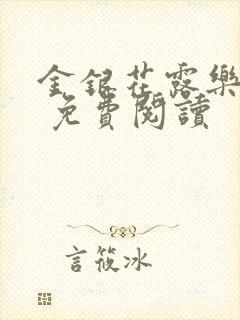 金銀花露樂
免費閱讀
言筱冰